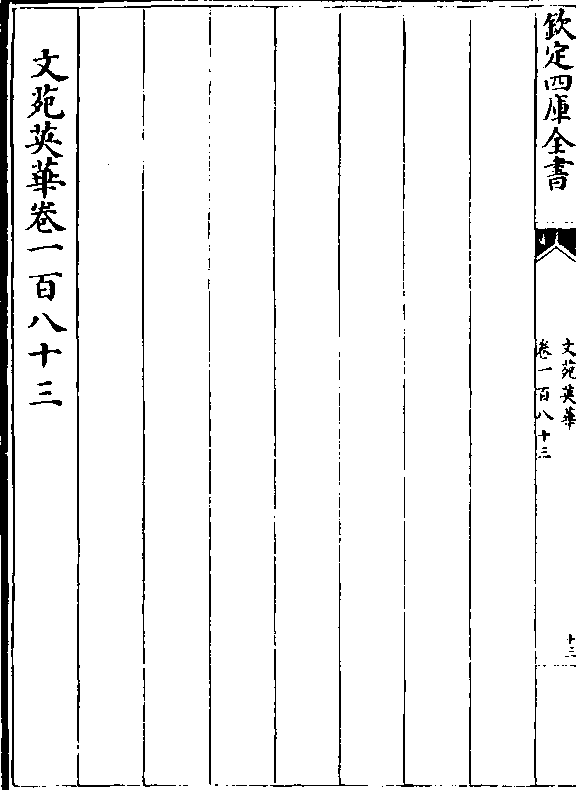 欽定四庫全書
文苑英華
卷一百八十三
十三
文苑英華卷一百八十三